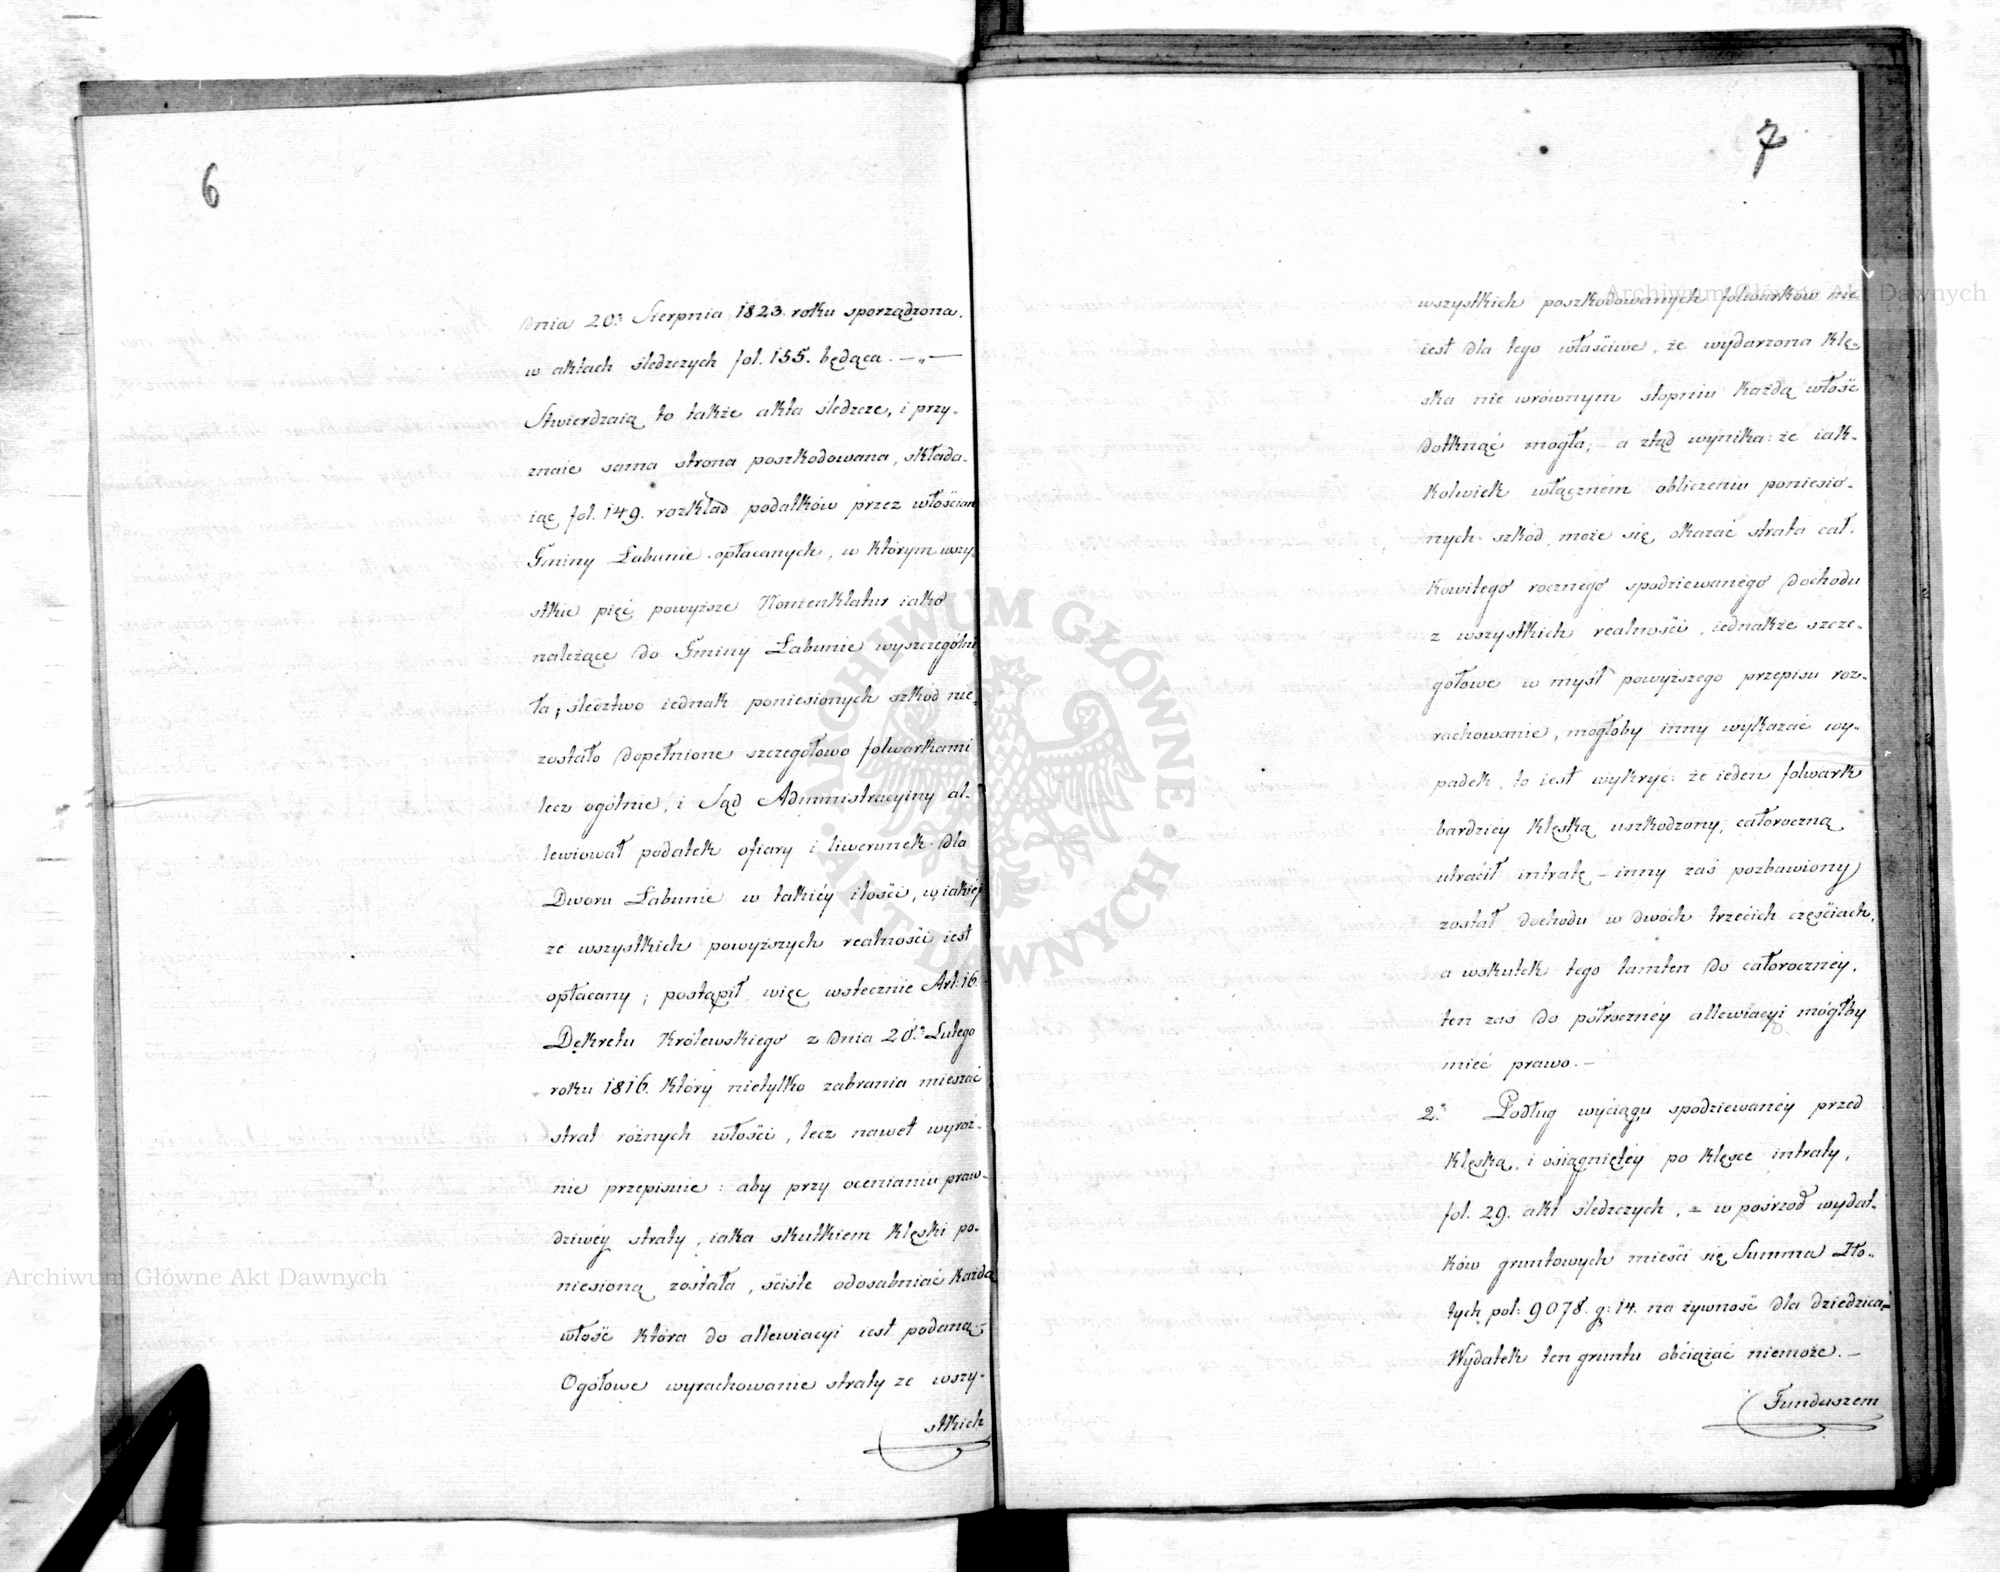 6
dnia 20º Sierpnia 1823. roku sporządzona,
w aktach śledzczych fol. 155. będąca. — „ —
Stwierdzaią to także akta śledzcze, i przy-
znaie sama strona poszkodowana, składa-
iąc fol. 149. rozkład podatków przez włościan
Gminy Łabunie opłacanych, w którym wszy-
stkie pięć powyższe Nomenklatur iako
należące do Gminy Łabunie wyszczególni-
ła; śledztwo iednak poniesionych szkód nie-
zostało dopełnione szczegółowo folwarkami
lecz ogólnie, i Sąd Administracyiny al-
lewiował podatek ofiary i liwerunek dla
Dworu Łabunie w takiéy ilości, w iakiéy
ze wszystkich powyższych realności iest
opłacany; postąpił więc wstecznie Art: 16.
Dekretu Królewskiego z dnia 20º Lutego
roku 1816. który nietylko zabrania mieszać
strat różnych włości, lecz nawet wyraź-
nie przepisuie: aby przy ocenianiu praw-
dziwéy straty, iaka skutkiem klęski po-
niesioną została, ściśle odosabniać każdą
włość która do allewiacyi iest podaną.-
Ogółowe wyrachowanie straty ze wszy-
stkich
7
wszystkich poszkodowanych folwarków nie
iest dla tego właściwe, że wydarzona klę-
ska nie wrównym stopniu każdą włość
dotknąć mogła; – a ztąd wynika: że iak-
kolwiek włącznem obliczeniu poniesio-
nych szkód, może się okazać strata cał-
kowitego rocznego spodziewanégo dochodu
z wszystkich realności, iednakże szcze-
gółowe w myśl powyższego przepisu roz-
rachowanie, mogłoby inny wykazać wy-
padek, to iest wykryć: że ieden folwark
bardziéy klęską uszkodzony, całoroczną
utracił intratę – inny zaś pozbawiony
został dochodu w dwóch trzecich częściach,
a wskutek tego tamten do całorocznéy,
ten zaś do półrocznéy allewiacyi mógłby
mieć prawo. –
2º Podług wyciągu spodziewanéy przed
klęską, i osiągniętéy po klęsce intraty,
fol. 29. akt śledzczych, – w pośrzod wydat-
ków gruntowych mieści się Summa Zło-
tych pol: 9078. g: 14. na żywność dla dziedzica.-
Wydatek ten gruntu obciążać niemoże. –
Funduszem
Archiwum Główne Akt Dawnych
Archiwum Główne Akt Dawnych
ARCHIWUM GŁÓWNE
AKT DAWNYCH